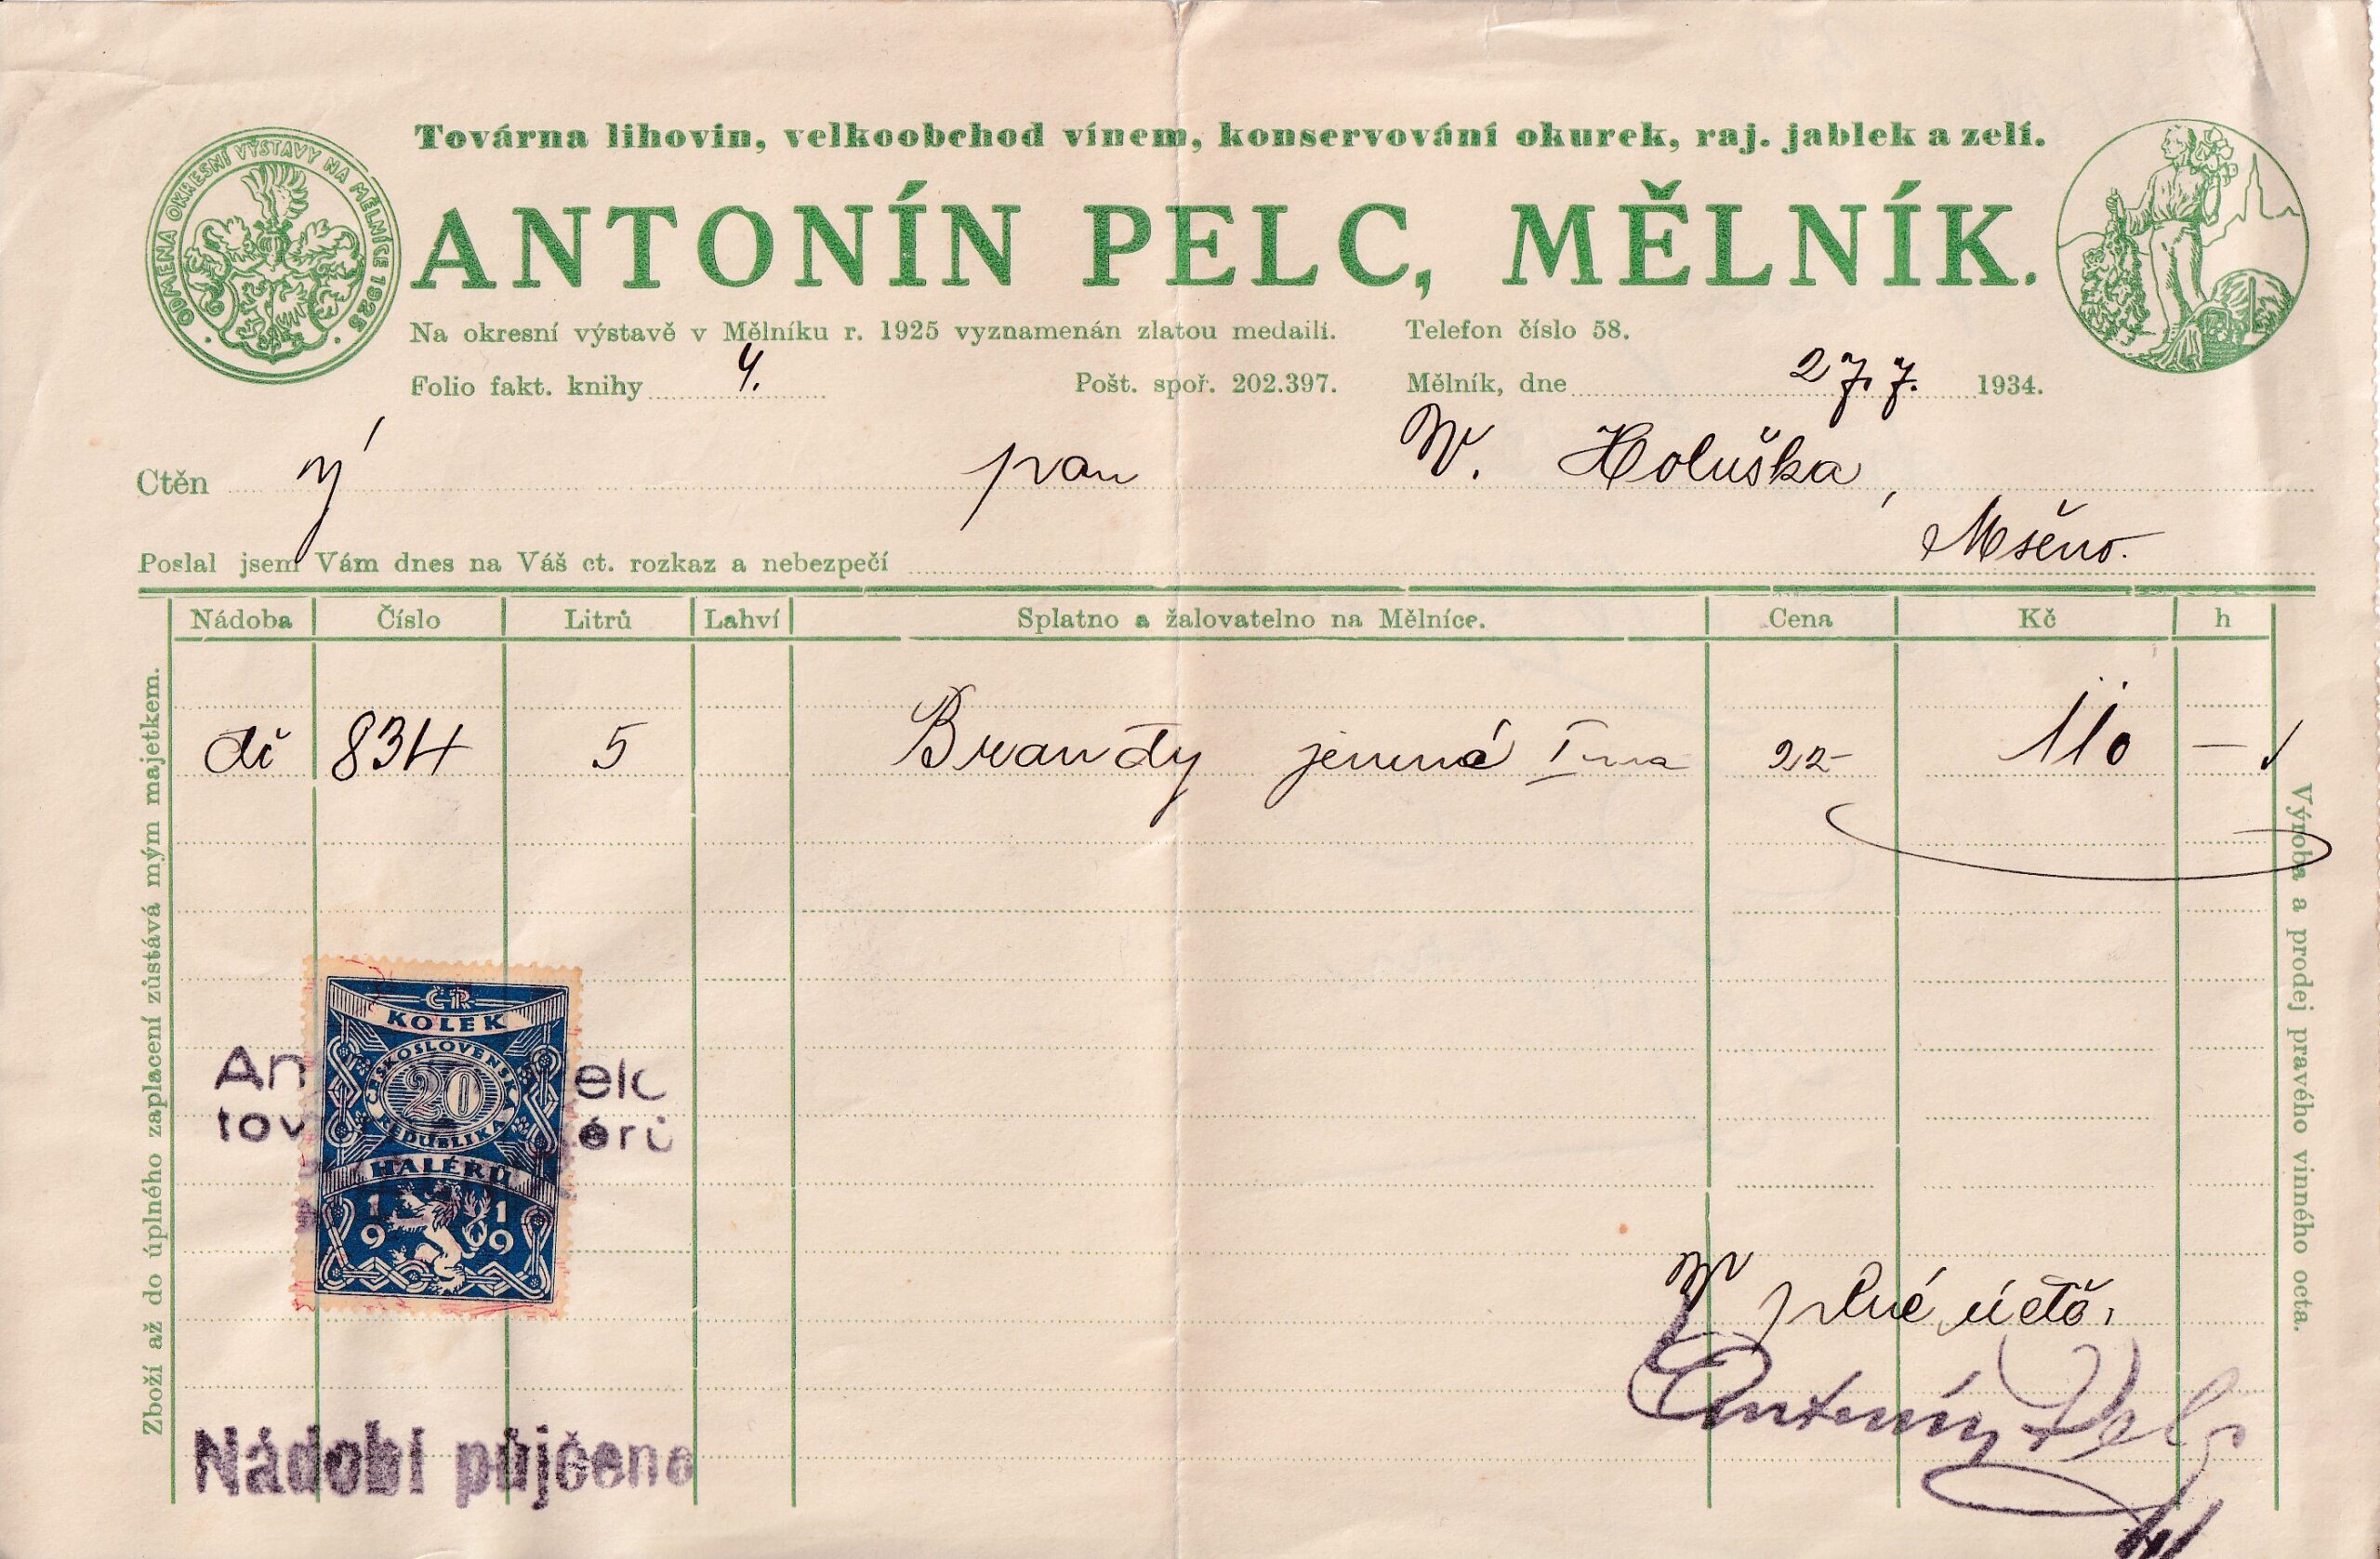 Továrna lihovin, velkoobchod vínem, konservování okurek, raj. jablek a zelí.
ODMĚNA OKRESNÍ VÝSTAVY NA MĚLNÍCE 1925
ANTONÍN PELC, MĚLNÍK.
Na okresní výstavě v Mělníku r. 1925 vyznamenán zlatou medailí. Telefon číslo 58.
Folio fakt. knihy 4. Pošt. spoř. 202.397. Mělník, dne 27. 7. 1934.
Ctěn ý pan W. Holuška,
Mšeno.
Poslal jsem Vám dnes na Váš ct. rozkaz a nebezpečí
Nádoba Číslo Litrů Lahví Splatno a žalovatelno na Mělníce. Cena Kč h
834 5 Brandy jemná Ima 22- 110 —
Zboží až do úplného zaplacení zůstává mým majetkem.
Výroba a prodej pravého vinného octa.
ČR
KOLEK
ČESKOSLOVENSKÁ
20
REPUBLIKA
HALÉŘŮ
1 1
9 9
An elc
tov érů
V plné úctě,
Antonín Pelc
Nádobí půjčeno